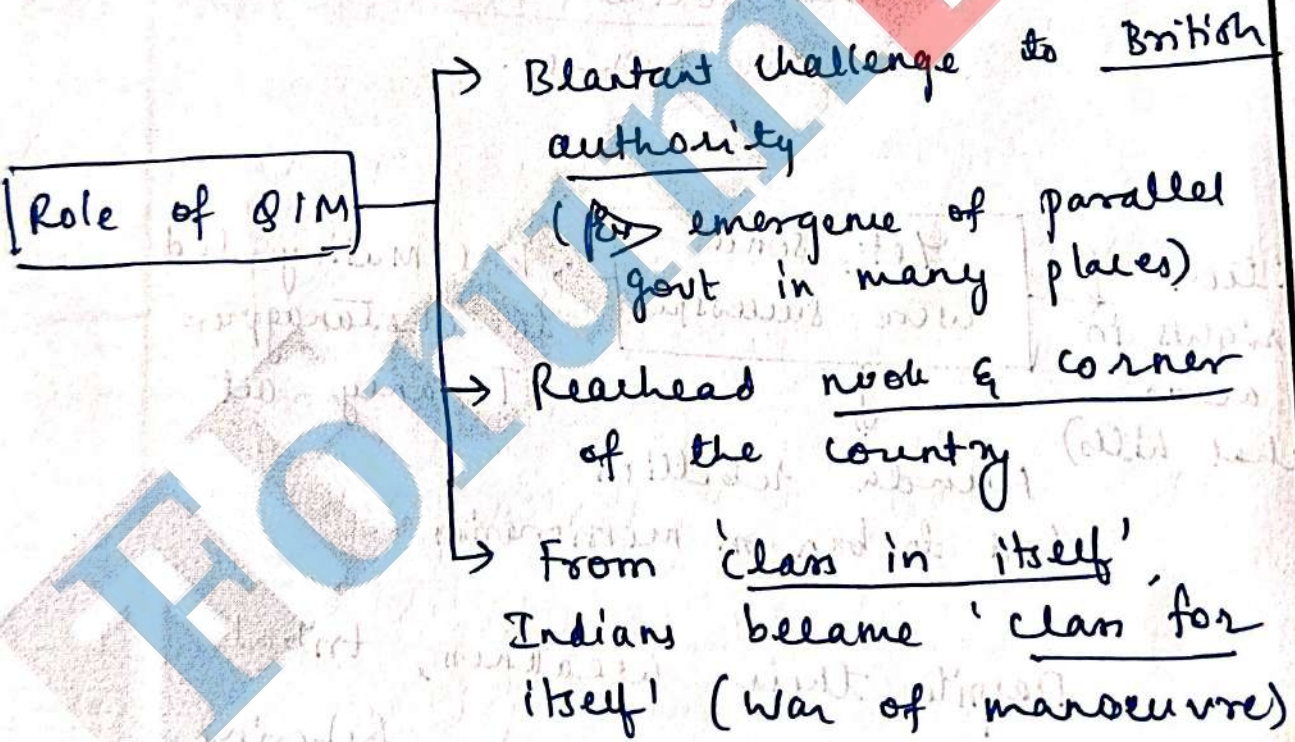 Role of QIM
→ Blantant challenge to British
authority
( emergene of parallel
govt in many places)
→ Reachead nook & corner
of the country
→ From 'class in itself'
Indians became 'class for
itself' (War of manoeuvres)
Forum